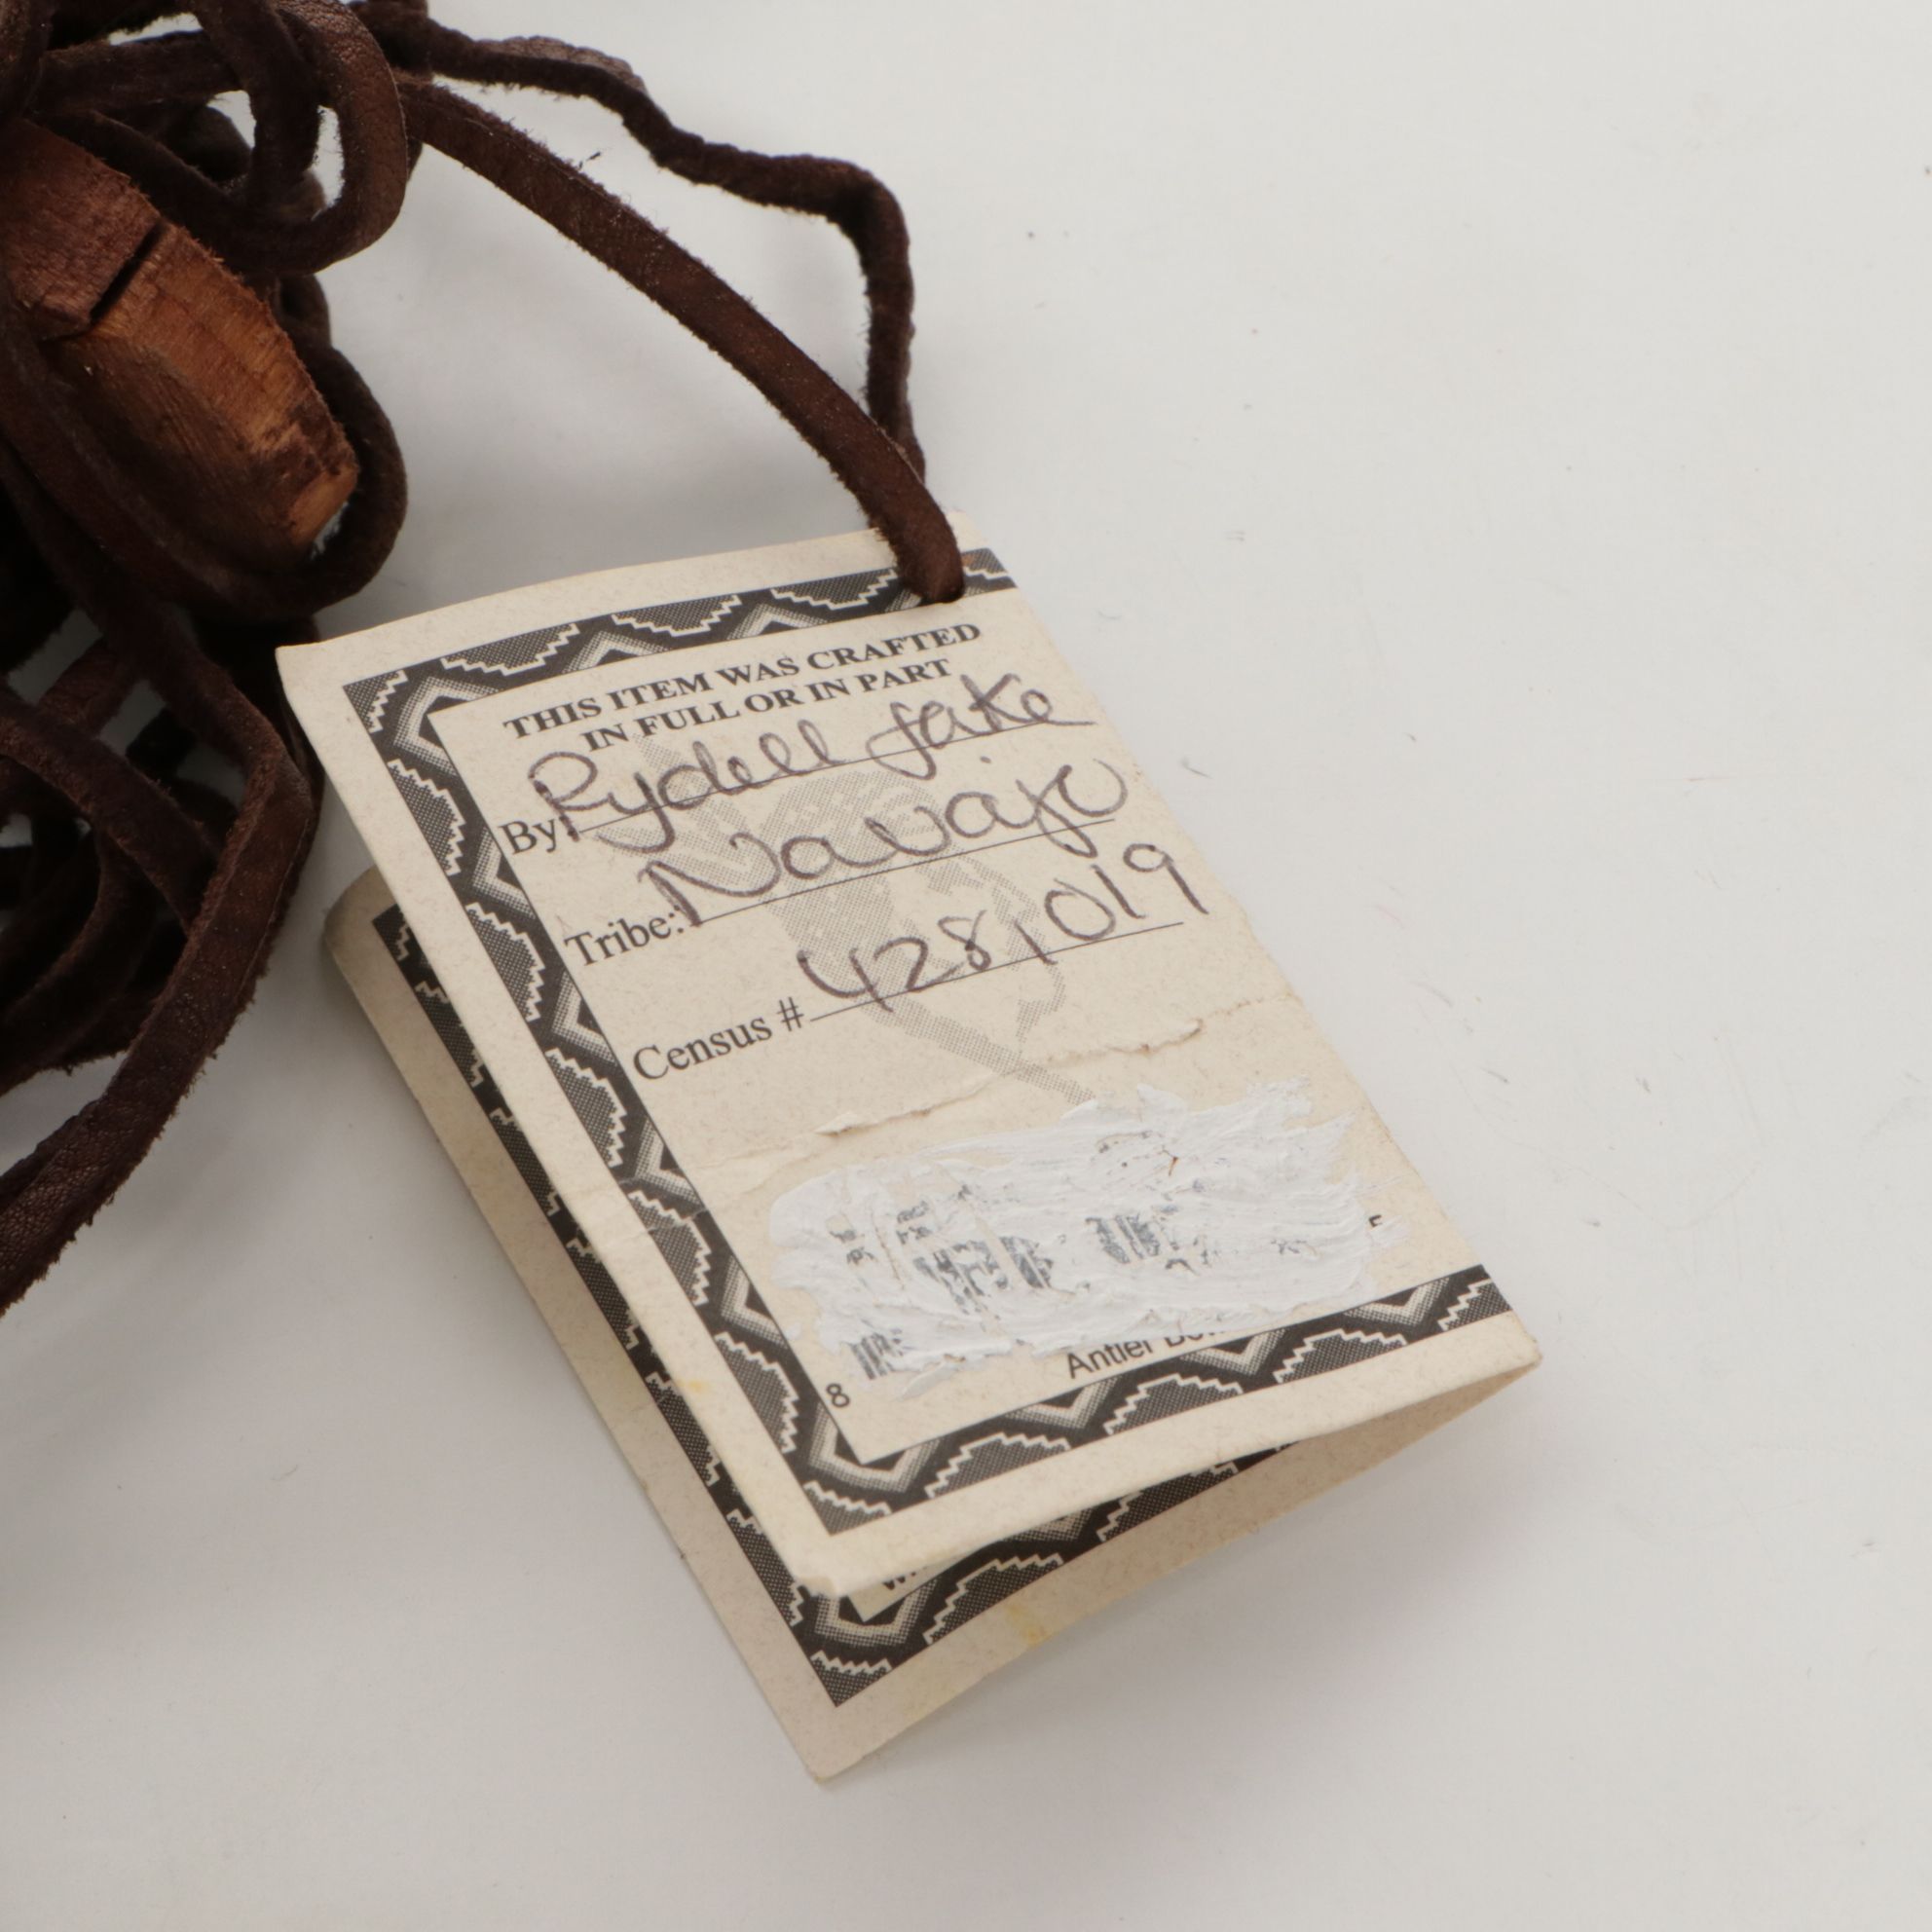 THIS ITEM WAS CRAFTED
IN FULL OR IN PART
By: Rydell Jake
Tribe: Navajo
Census # 428,019
8
Antler